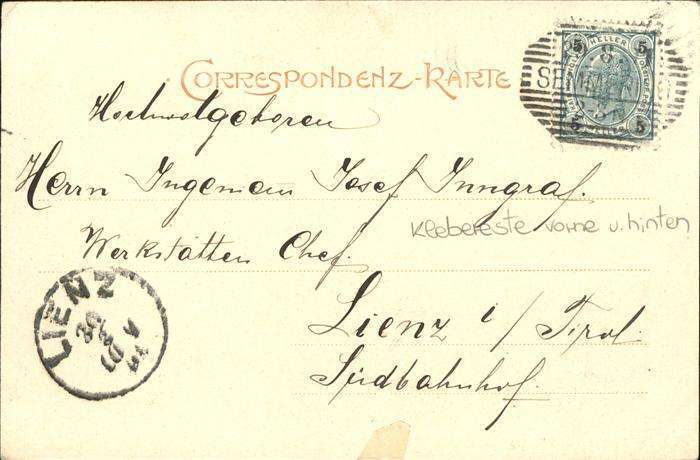 CORRESPONDENZ-KARTE
5 HELLER 5
5 5
Hochwolgeboren
Herrn Ingenieur Josef Inngraf.
Klebereste vorne u. hinten
Werkstätten Chef.
LIENZ
Lienz i/Tirol
Südbahnhof.